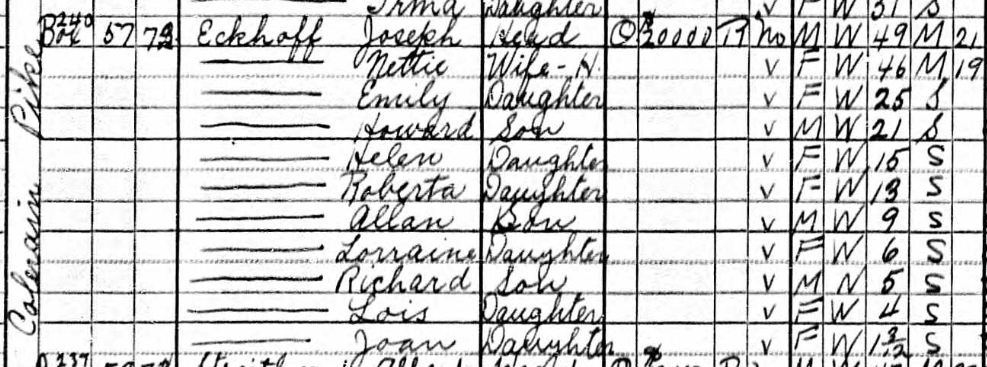 Irma Daughter V F W 31 S
Colerain Pike
240
Box 57 72 Eckhoff Joseph Head O $20000 R No M W 49 M 21
Nettie Wife-H V F W 46 M 19
Emily Daughter V F W 25 S
Howard Son V M W 21 S
Helen Daughter V F W 15 S
Roberta Daughter V F W 13 S
Allan Son V M W 9 S
Lorraine Daughter V F W 6 S
Richard Son V M W 5 S
Lois Daughter V F W 4 S
Joan Daughter V F W 1 3/12 S
237